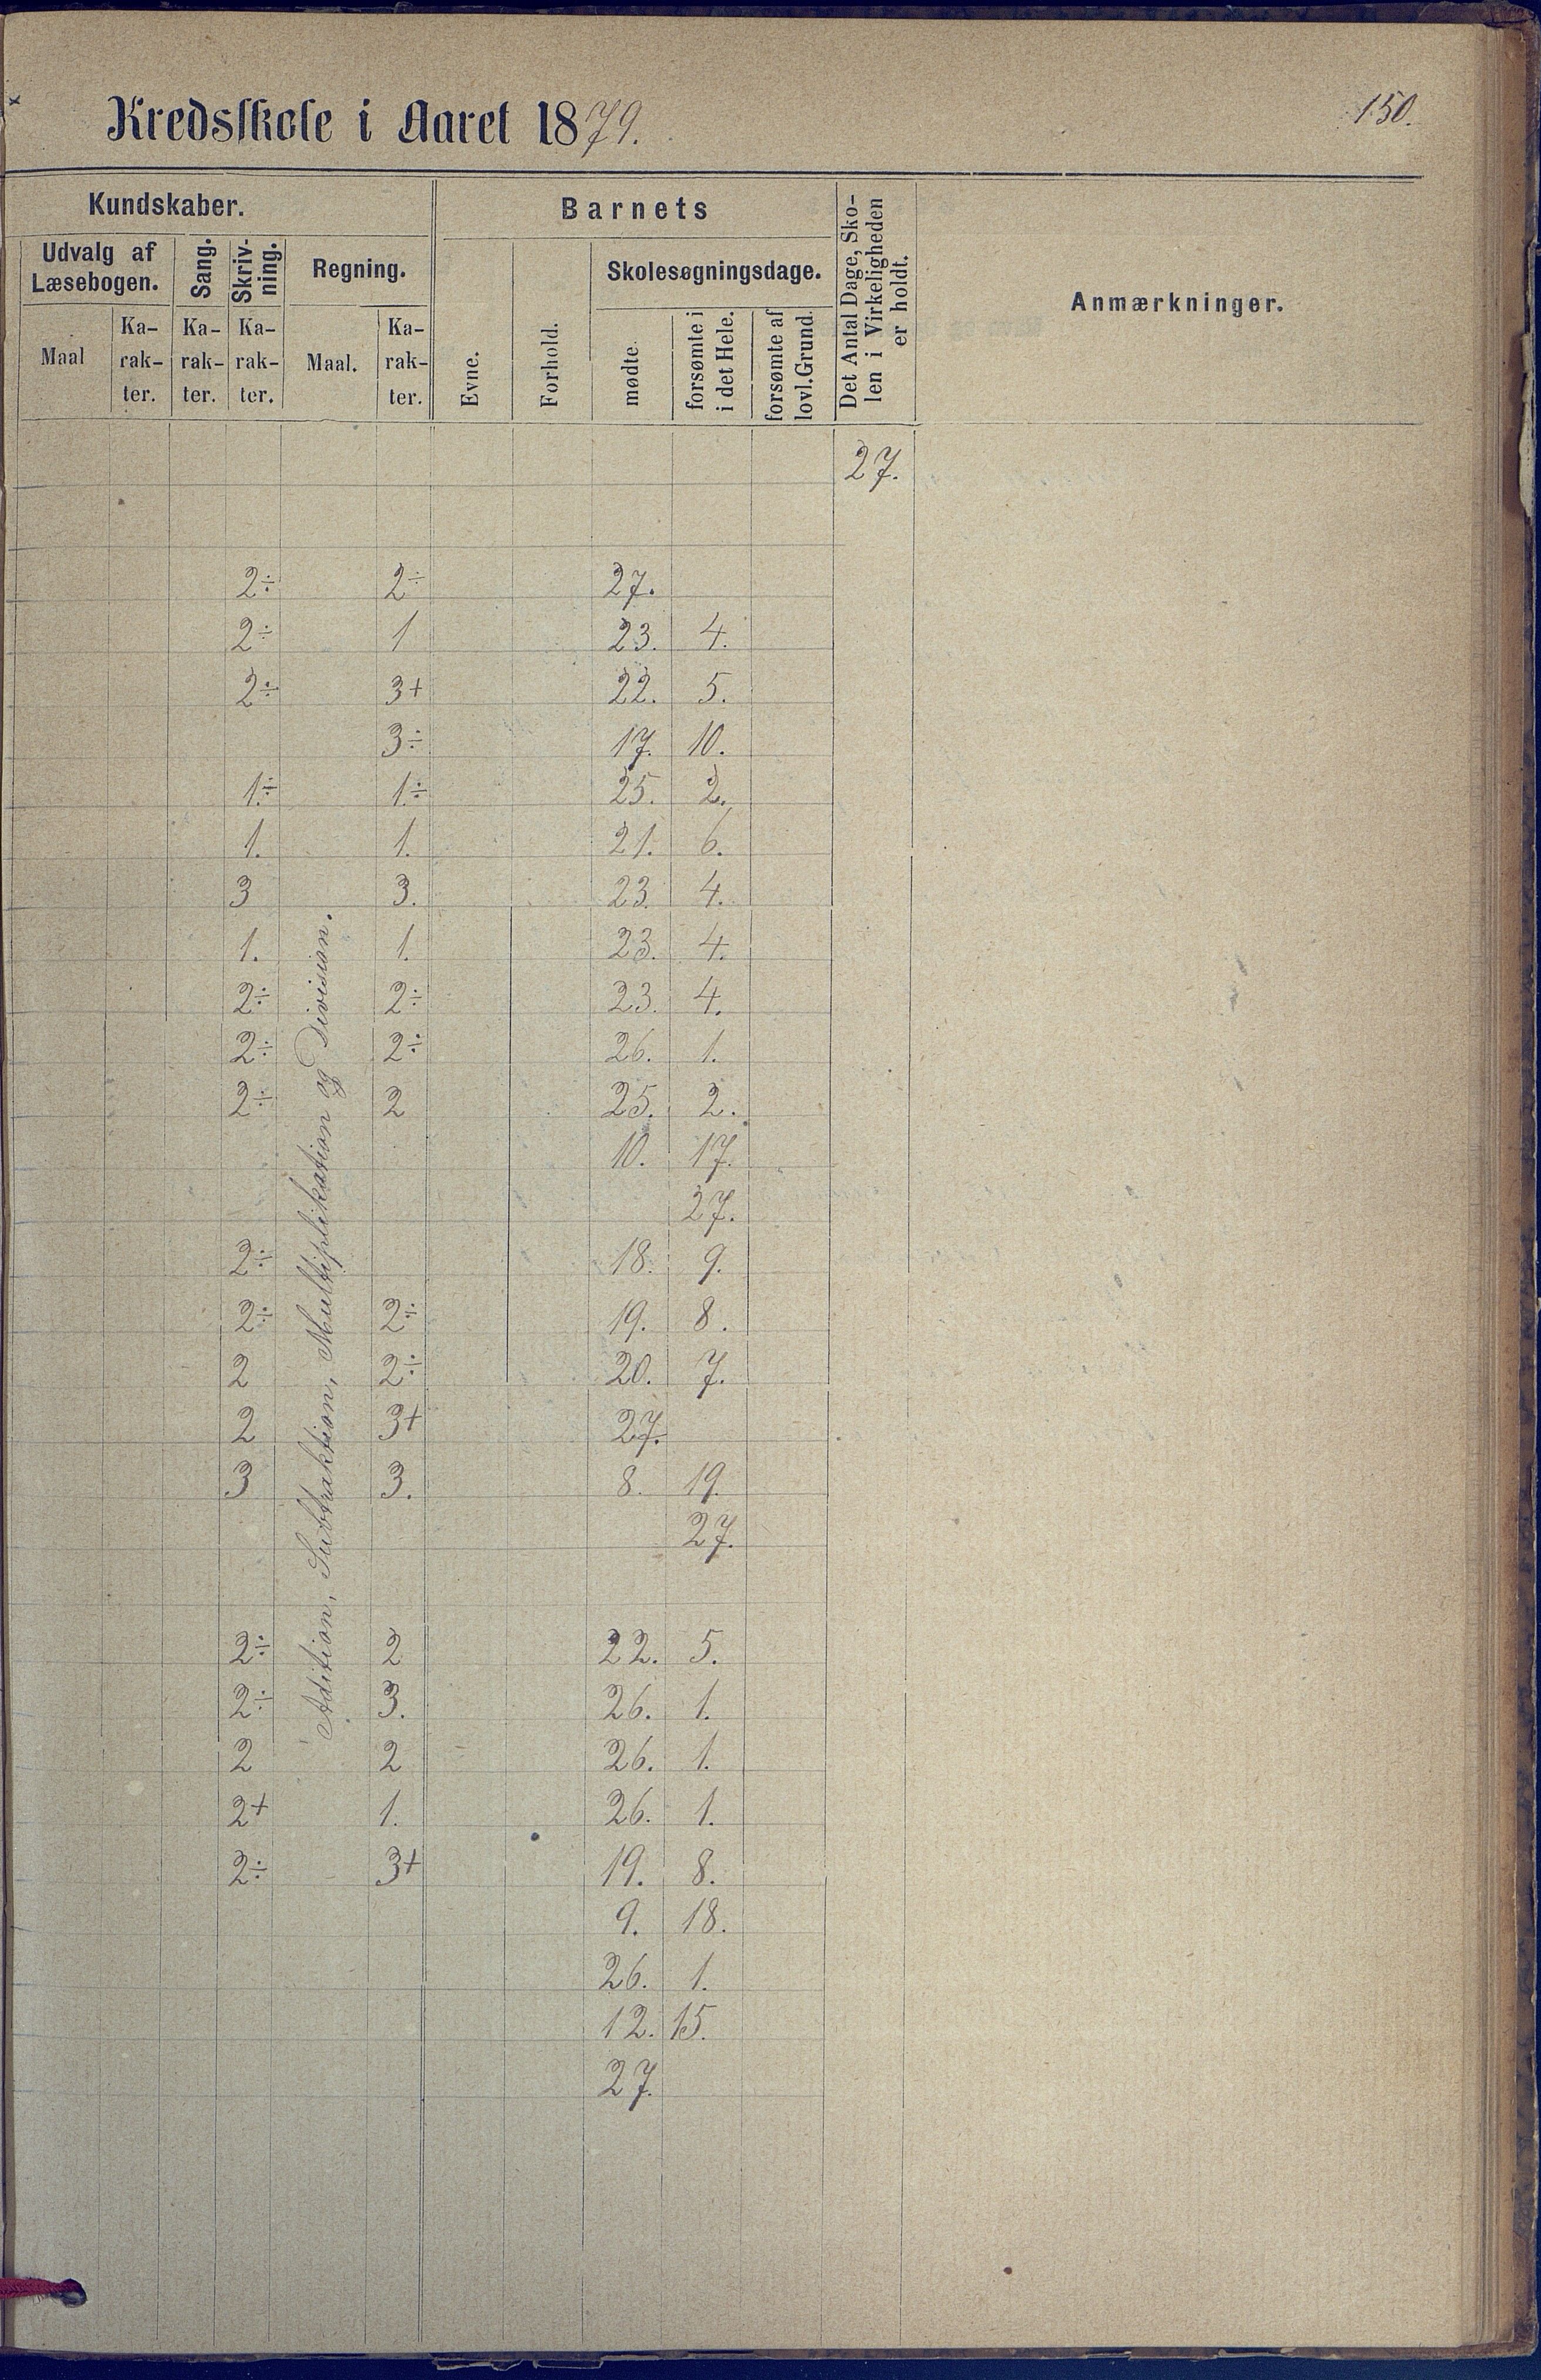 Kredsskole i Aaret 1879.
150.
Kundskaber.
Barnets
Det Antal Dage, Sko-
len i Virkeligheden
er holdt.
Anmærkninger.
Udvalg af
Læsebogen.
Sang.
Skriv-
ning.
Regning.
Evne.
Forhold.
Skolesøgningsdage.
Maal
Ka-
rak-
ter.
Ka-
rak-
ter.
Ka-
rak-
ter.
Maal.
Ka-
rak-
ter.
mødte.
forsømte i
i det Hele.
forsømte af
lovl. Grund.
27.
Adition, Subtraktion, Multiplikation og Division.
2÷ 2÷ 27.
2÷ 1 23. 4.
2÷ 3+ 22. 5.
3÷ 17. 10.
1÷ 1÷ 25. 2.
1. 1. 21. 6.
3 3. 23. 4.
1. 1. 23. 4.
2÷ 2÷ 23. 4.
2÷ 2÷ 26. 1.
2÷ 2 25. 2.
10. 17.
27.
2÷ 18. 9.
2÷ 2÷ 19. 8.
2 2÷ 20. 7.
2 3+ 27.
3 3. 8. 19.
27.
2÷ 2 22. 5.
2÷ 3. 26. 1.
2 2 26. 1.
2+ 1. 26. 1.
2÷ 3+ 19. 8.
9. 18.
26. 1.
12. 15.
27.